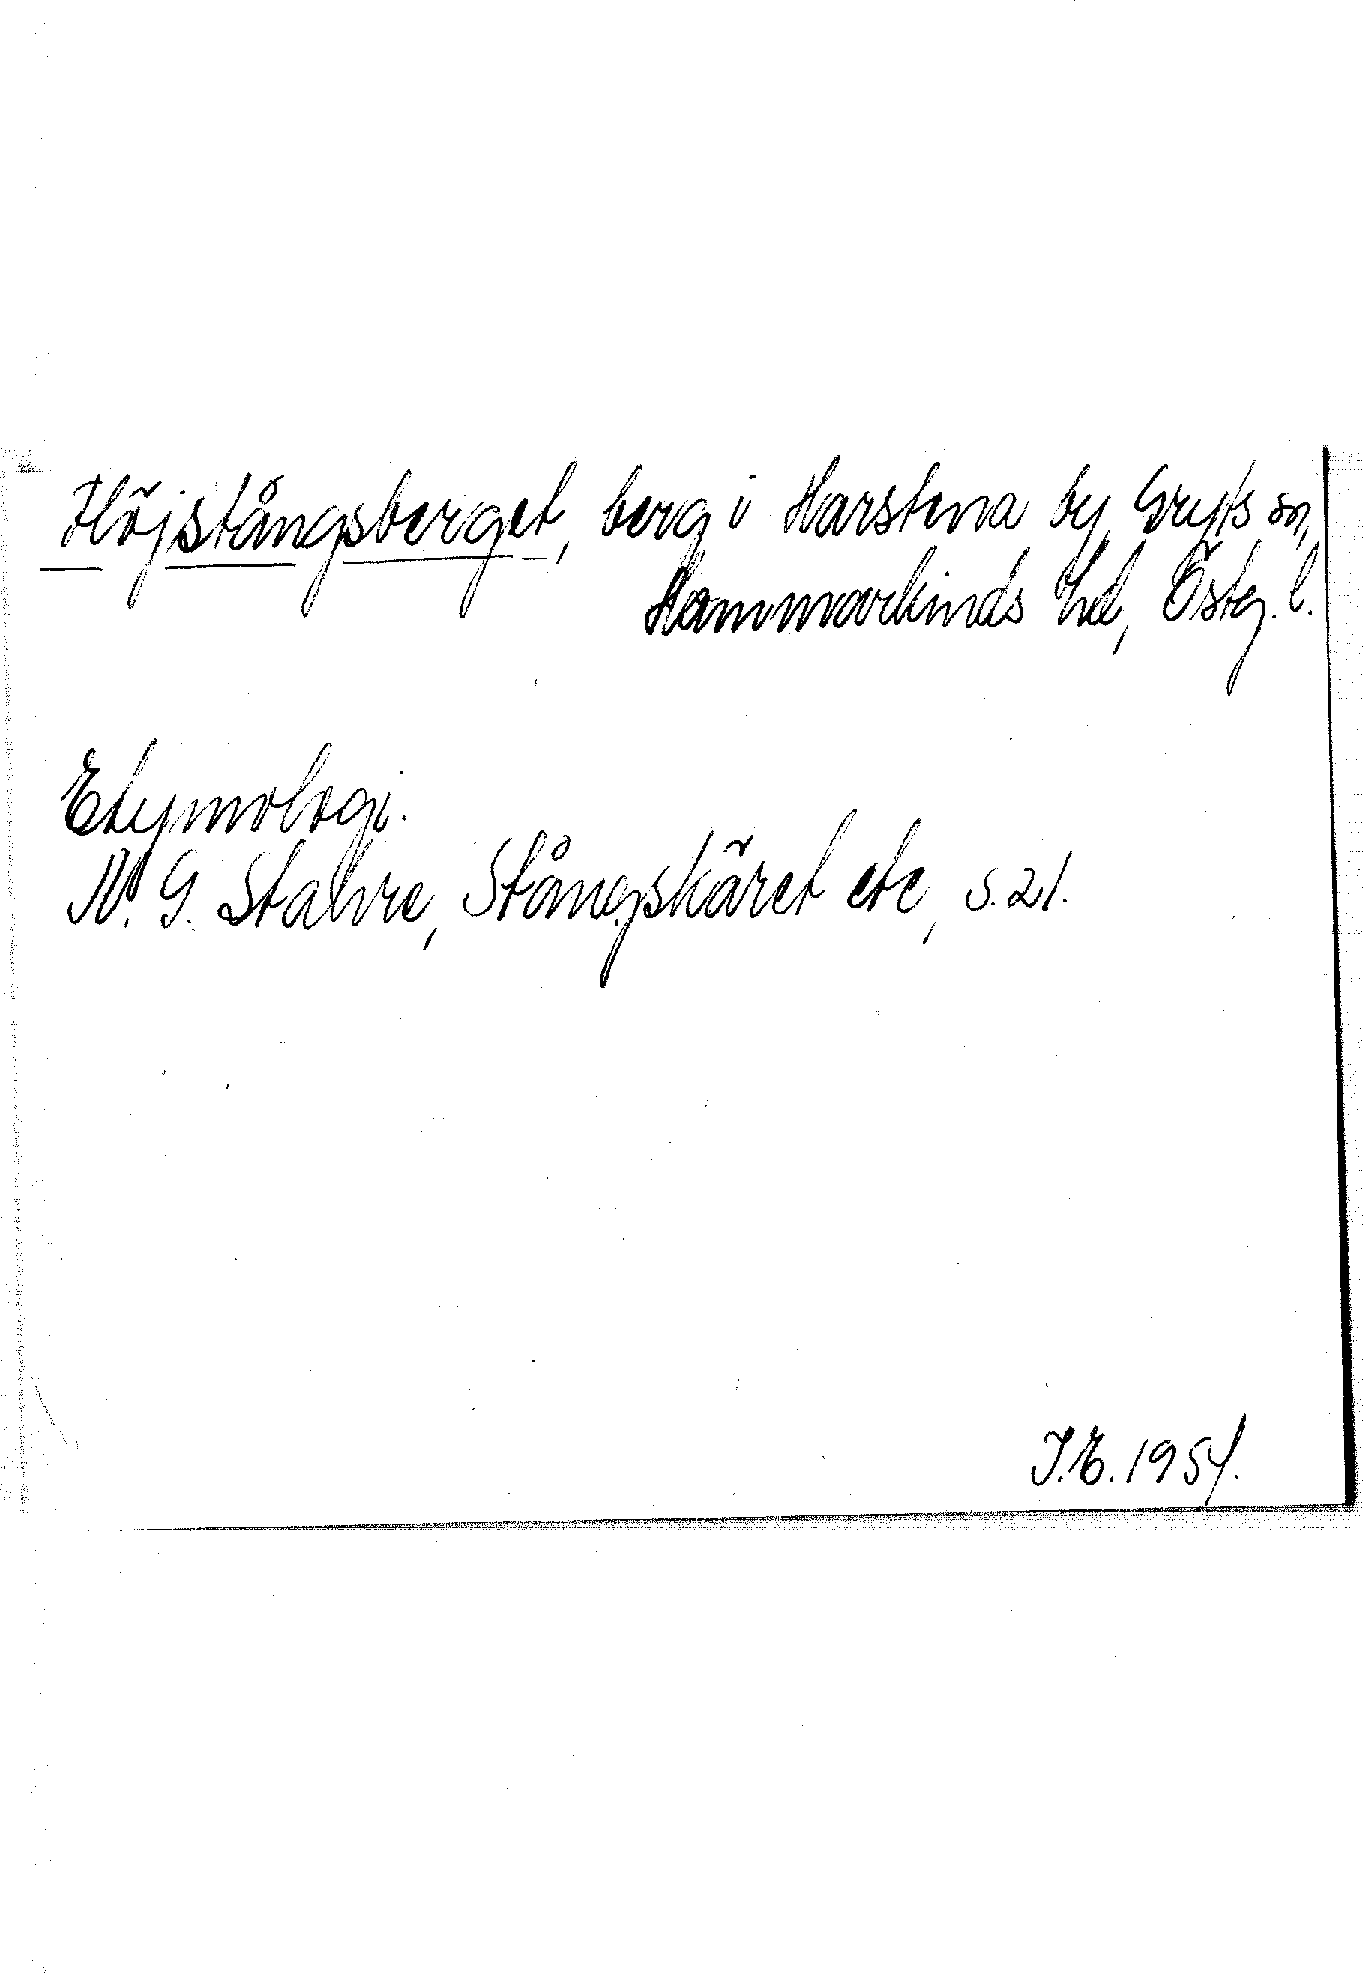 Höjstångsberget, berg i Harstena by, Gryts sn,
Hammarkinds hd, Östg. l.
Etymologi.
N. G. Stahre, Stångskäret etc, s. 21.
I.E. 1954.